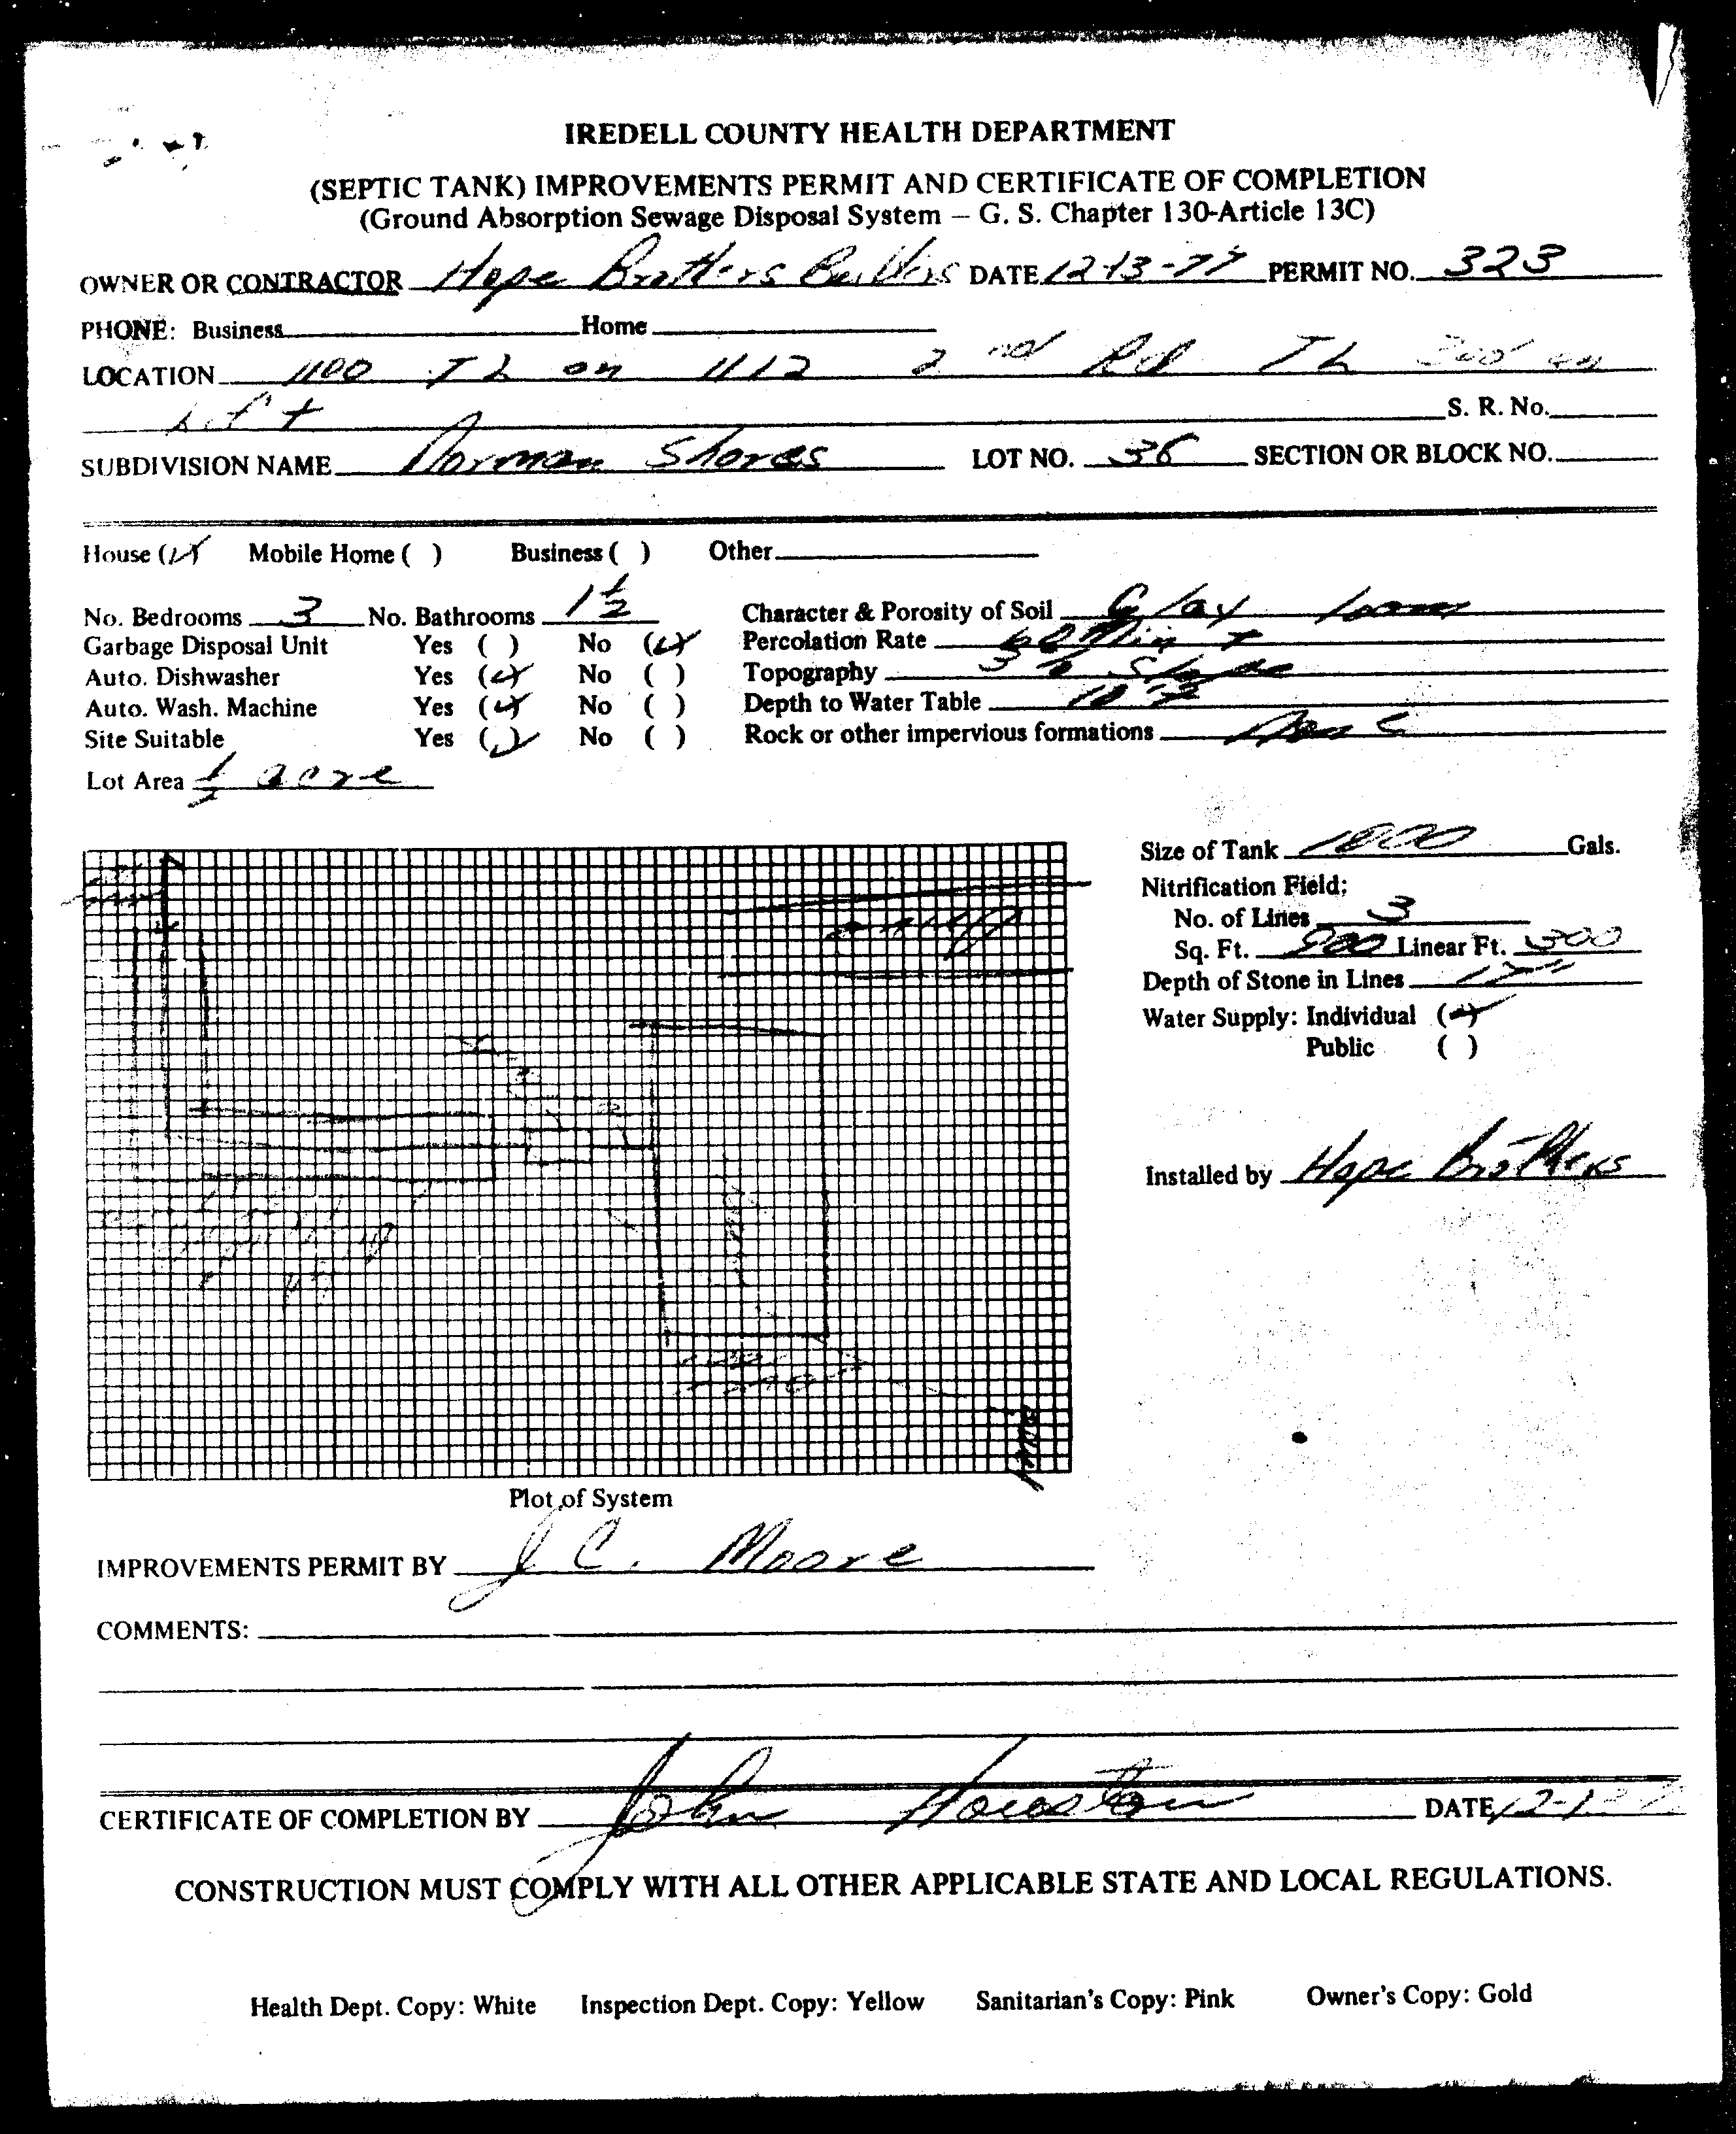 IREDELL COUNTY HEALTH DEPARTMENT
(SEPTIC TANK) IMPROVEMENTS PERMIT AND CERTIFICATE OF COMPLETION
(Ground Absorption Sewage Disposal System – G. S. Chapter 130-Article 13C)
OWNER OR CONTRACTOR Hope Brothers Builders DATE 12-13-77 PERMIT NO. 323
PHONE: Business Home
LOCATION 1100 TL on 1112 2nd Rd TL 3rd on
left S. R. No.
SUBDIVISION NAME Norman Shores LOT NO. 36 SECTION OR BLOCK NO.
House (✓) Mobile Home ( ) Business ( ) Other
No. Bedrooms 3 No. Bathrooms 1 1/2 Character & Porosity of Soil Clay loam
Garbage Disposal Unit Yes ( ) No (✓) Percolation Rate 60 Min +
Auto. Dishwasher Yes (✓) No ( ) Topography 3% Slope
Auto. Wash. Machine Yes (✓) No ( ) Depth to Water Table
Site Suitable Yes (✓) No ( ) Rock or other impervious formations
Lot Area 1/2 acre
Size of Tank 1000 Gals.
Nitrification Field:
No. of Lines 3
Sq. Ft. 900 Linear Ft. 300
Depth of Stone in Lines
Water Supply: Individual (✓)
Public ( )
Installed by Hope Brothers
Plot of System
IMPROVEMENTS PERMIT BY J C. Moore
COMMENTS:
CERTIFICATE OF COMPLETION BY John Houston DATE
CONSTRUCTION MUST COMPLY WITH ALL OTHER APPLICABLE STATE AND LOCAL REGULATIONS.
Health Dept. Copy: White Inspection Dept. Copy: Yellow Sanitarian's Copy: Pink Owner's Copy: Gold